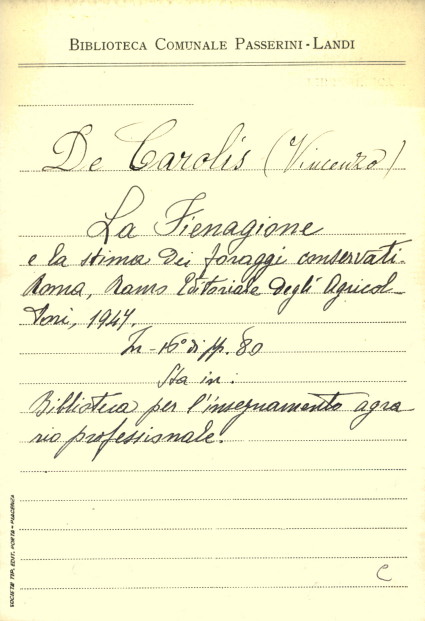 BIBLIOTECA COMUNALE PASSERINI-LANDI
De Carolis (Vincenzo)
La Fienagione
e la stima dei foraggi conservati.
Roma, Ramo Editoriale degli Agricol-
tori, 1947.
In-16° di pp. 80
Sta in:
Biblioteca per l'insegnamento agra-
rio professionale.
SOCIETÀ TIP. EDIT. PORTA - PIACENZA
C